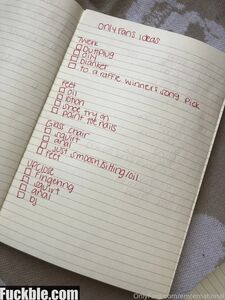 OnlyFans ideas:
Twerk
buttplug
oily
blanket
to a raffle winners song pick
feet
oil
lotion
shoe try on
paint toe nails
Glass chair
squirt
anal
just smoosh/sitting/oil
feet
upclose
fingering
squirt
anal
bj
Fuckble.com